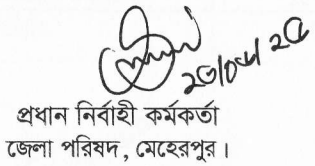 প্রধান নির্বাহী কর্মকর্তা
জেলা পরিষদ, মেহেরপুর।